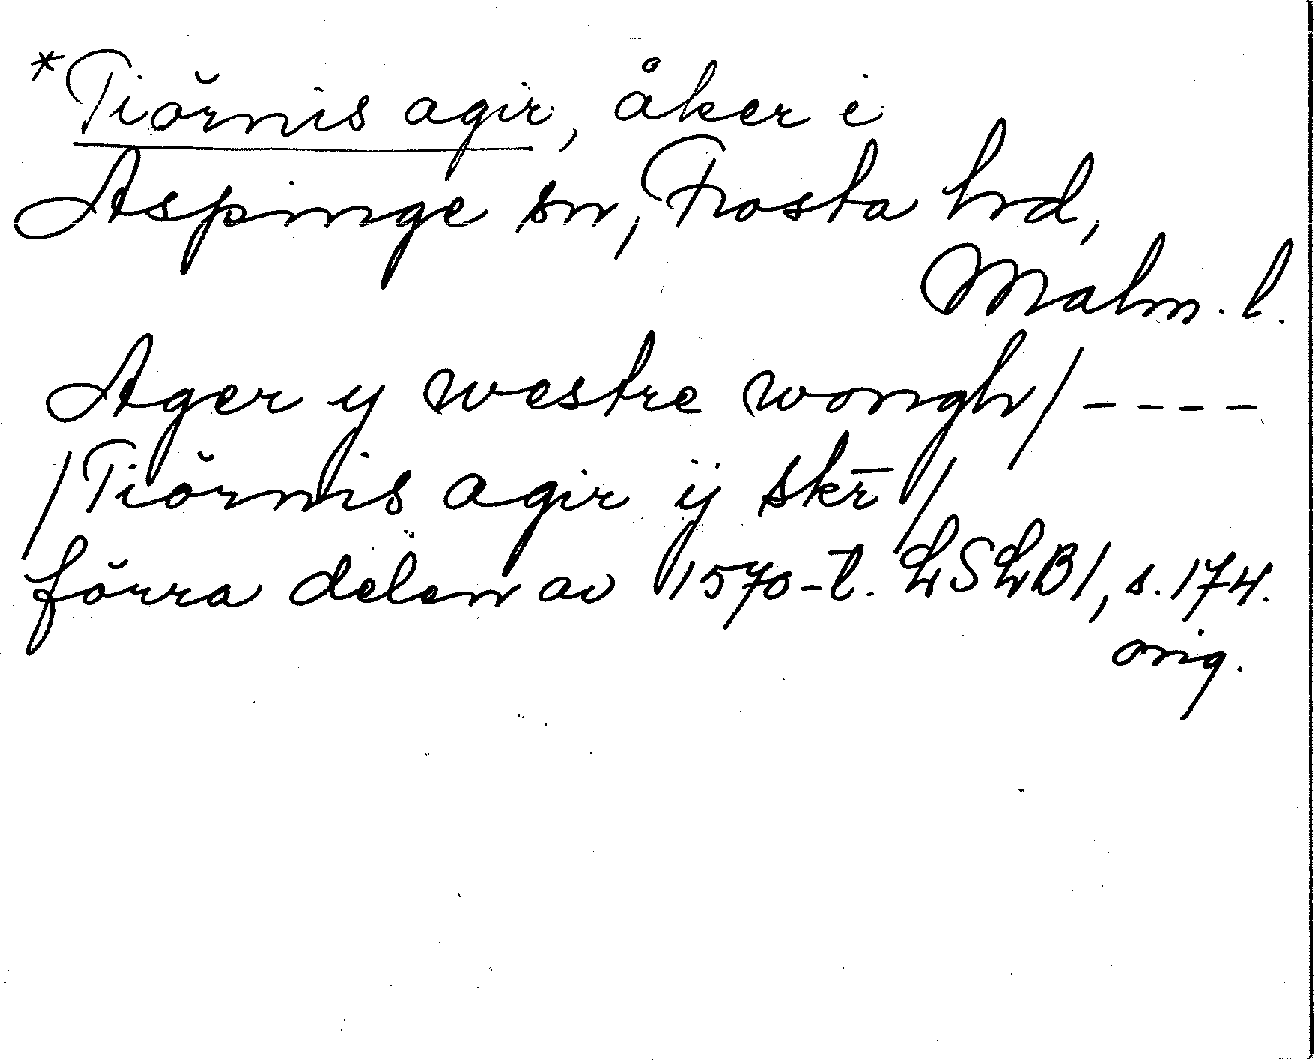 *Tiörnis agir, åker i
Aspinge sn, Frosta hrd,
Malm. l.
Ager y westre wongh/----
/Tiörnis agir ij skr̄/
förra delen av 1570-t. LSLB1, s. 174.
orig.